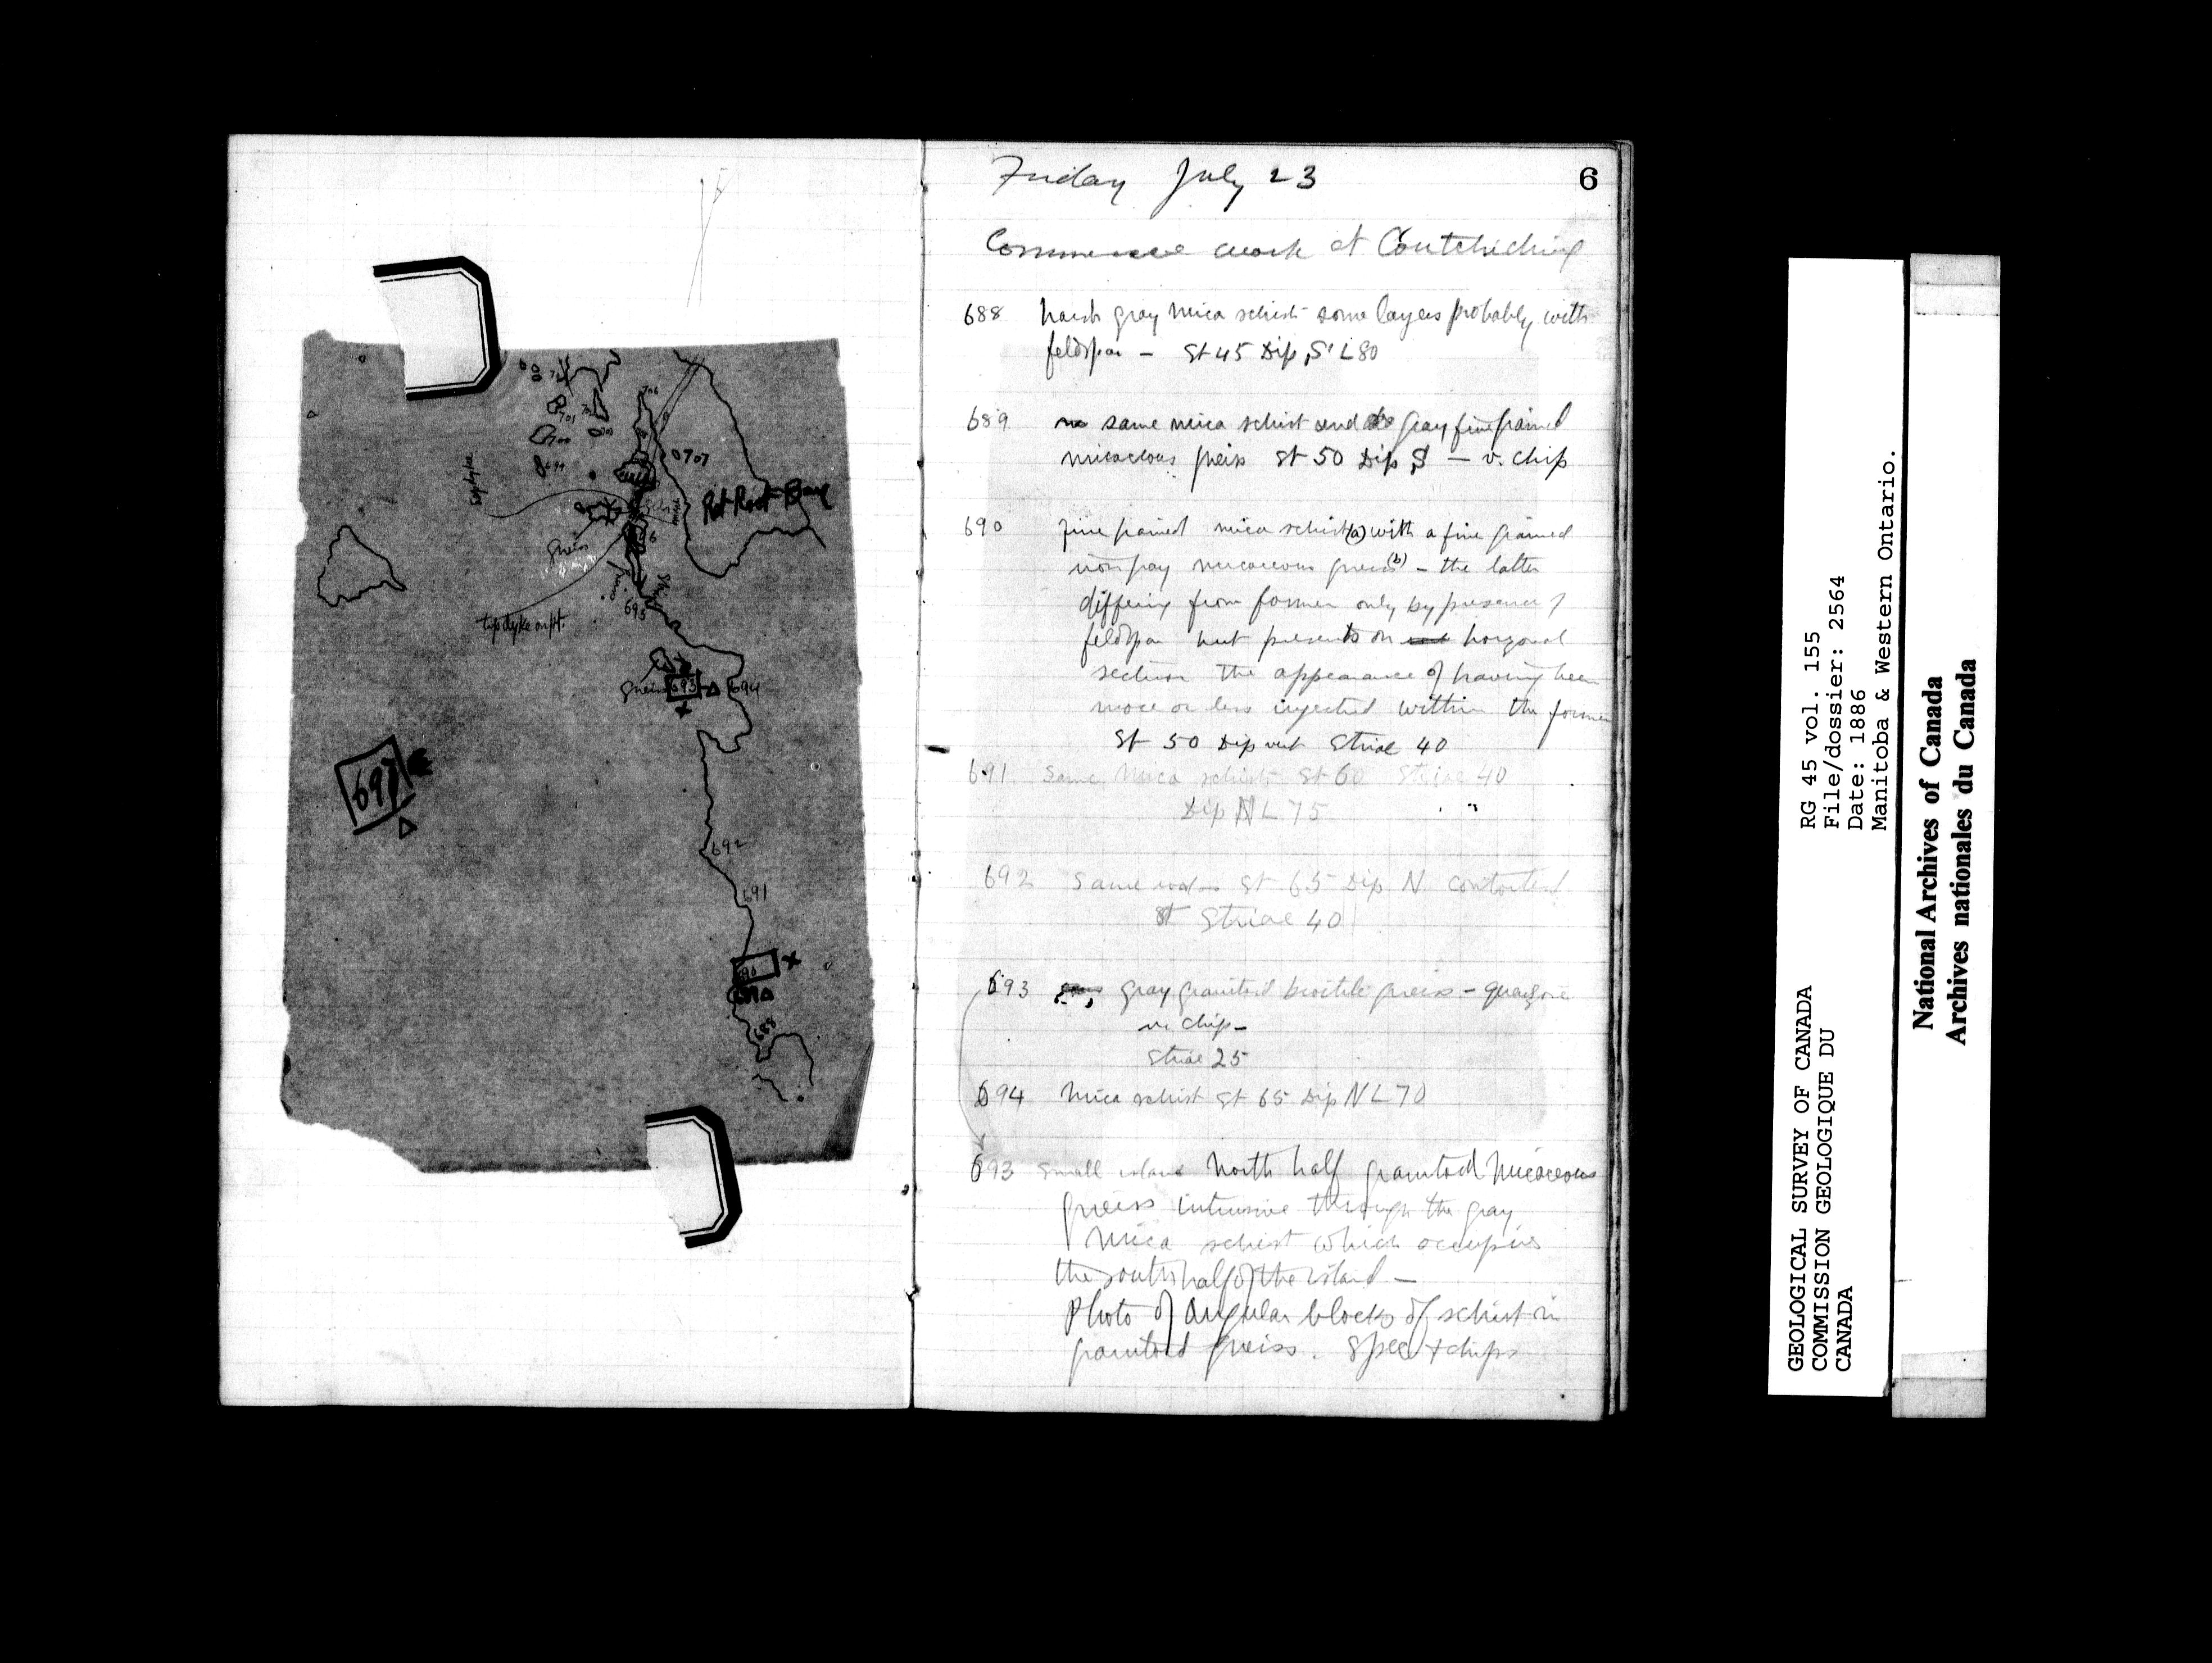 706
701
700
699
0707
Rat Root Bay
gneiss
696
695
trap dyke on pt.
gneiss 693 Δ 694
697
Δ
692
691
690
689 Δ
688
6
Friday July 23
Commence work at Coutchiching
688 harsh gray mica schist some layers probably with
feldspar - St 45 Dip S L 80
689 same mica schist and gray fine grained
micaceous gneiss St 50 Dip S - v. chip
690 fine grained mica schist (a) with a fine grained
micaceous gneiss (b) - the latter
differing from former only by presence of
feldspar but presents on horizontal
section the appearance of having been
more or less injected within the former
St 50 Dip vert Striae 40
691. Same Mica schist St 60 Striae 40
Dip N L 75
692 Same St 65 Dip N contorted
Striae 40
693 gray granitoid biotite gneiss -
v. chip -
Striae 25
694 Mica schist St 65 Dip N L 70
693 small island North half granitoid micaceous
gneiss intrusive through the gray
mica schist which occupies
the south half of the island -
Photo of angular blocks of schist in
granitoid gneiss. Spec + chips
GEOLOGICAL SURVEY OF CANADA
COMMISSION GEOLOGIQUE DU
CANADA
RG 45 vol. 155
File/dossier: 2564
Date: 1886
Manitoba & Western Ontario.
National Archives of Canada
Archives nationales du Canada